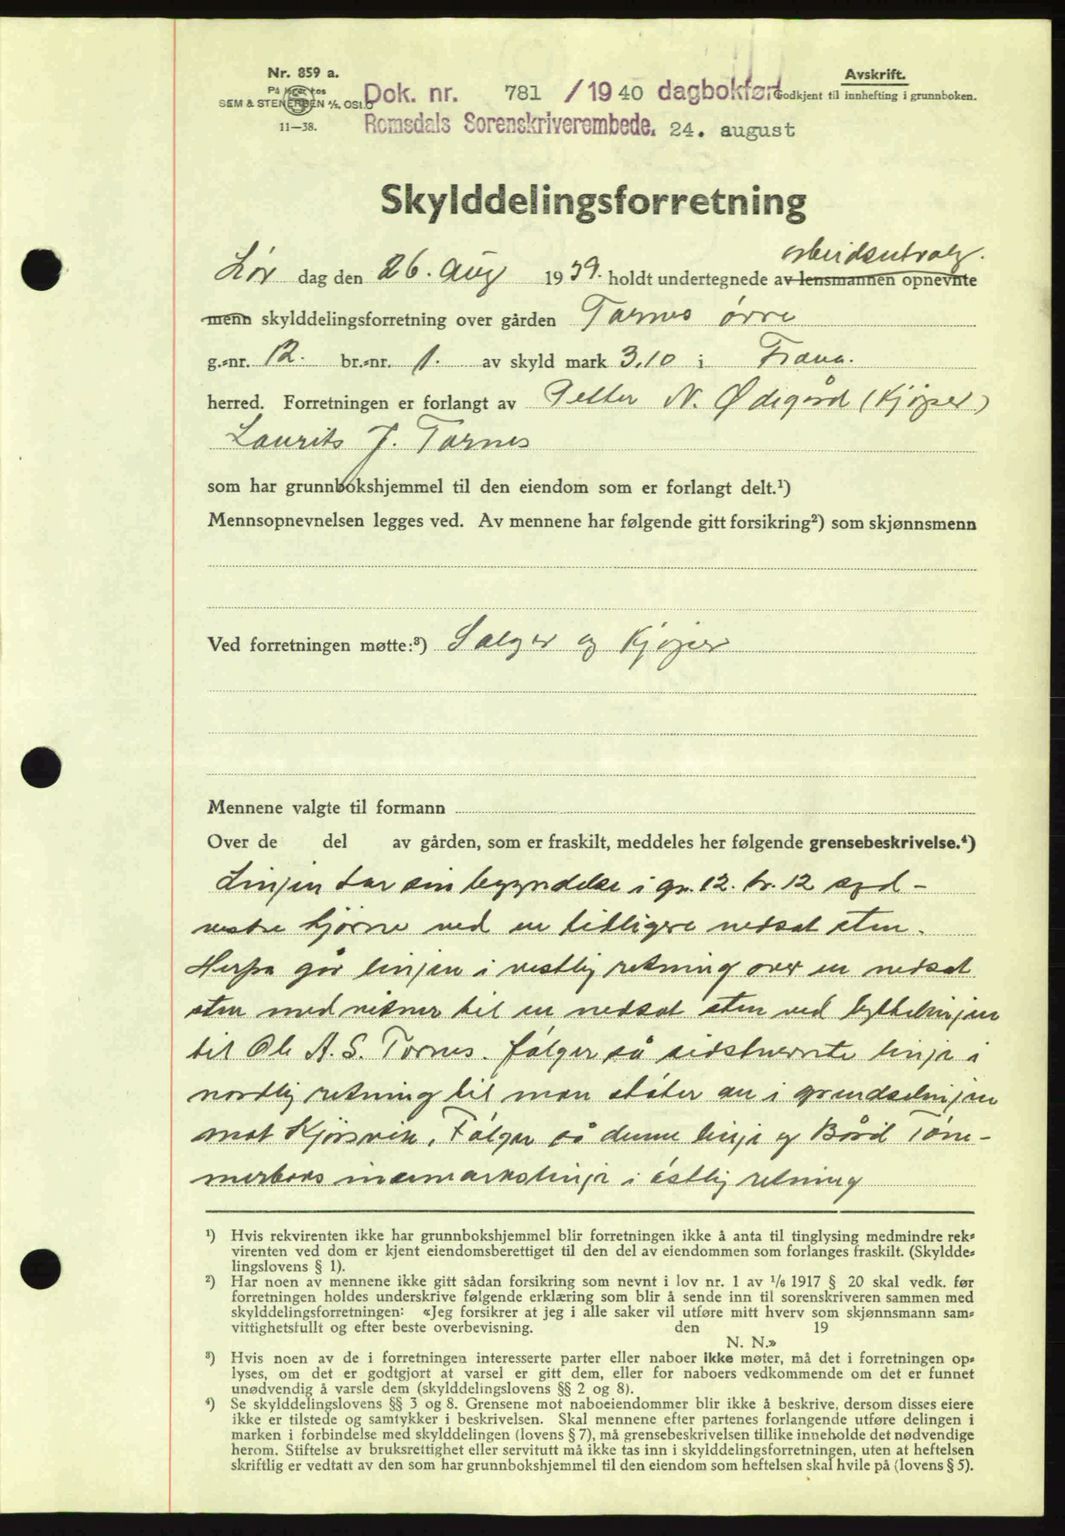 Nr. 859 a.
På lager hos
SEM & STENERSEN A/S, OSLO
11—38.
Dok. nr. 781 /1940 dagbokført
Romsdals Sorenskriverembede. 24. august
Avskrift.
Godkjent til innhefting i grunnboken.
Skylddelingsforretning
arbeidsutvalg.
Lør dag den 26. Aug 1939. holdt undertegnede av lensmannen opnevnte
menn skylddelingsforretning over gården Tornes øvre
g.-nr. 12. br.-nr. 1. av skyld mark 3,10 i Fræna.
herred. Forretningen er forlangt av Petter N. Ødegård (Kjøper)
Laurits J. Tornes
som har grunnbokshjemmel til den eiendom som er forlangt delt.¹)
Mennsopnevnelsen legges ved. Av mennene har følgende gitt forsikring²) som skjønnsmenn
Ved forretningen møtte:³) Selger og Kjøper
Mennene valgte til formann
Over de del av gården, som er fraskilt, meddeles her følgende grensebeskrivelse.⁴)
Linjen tar sin begyndelse i gr. 12. br. 12 syd-
vestre hjørne ved en tidligere nedsat sten.
Herfra går linjen i vestlig retning over en nedsat
sten med visner til en nedsat sten ved byttelinjen
til Ole A. S. Tornes. følger så sidstnevnte linje i
nordlig retning til man støter an i grendselinjen
mot Kjørsvik. Følger så denne linje og Bård Tøm-
merboks innmarkslinje i østlig retning
¹) Hvis rekvirenten ikke har grunnbokshjemmel blir forretningen ikke å anta til tinglysing medmindre rek-
virenten ved dom er kjent eiendomsberettiget til den del av eiendommen som forlanges fraskilt. (Skyldde-
lingslovens § 1).
²) Har noen av mennene ikke gitt sådan forsikring som nevnt i lov nr. 1 av ¹/₆ 1917 § 20 skal vedk. før
forretningen holdes underskrive følgende erklæring som blir å sende inn til sorenskriveren sammen med
skylddelingsforretningen: «Jeg forsikrer at jeg i alle saker vil utføre mitt hverv som skjønnsmann sam-
vittighetsfullt og efter beste overbevisning. den 19
N. N.»
³) Hvis noen av de i forretningen interesserte parter eller naboer ikke møter, må det i forretningen op-
lyses, om det er godtgjort at varsel er gitt dem, eller for naboers vedkommende om det er funnet
unødvendig å varsle dem (skylddelingslovens §§ 2 og 8).
⁴) Se skylddelingslovens §§ 3 og 8. Grensene mot naboeiendommer blir ikke å beskrive, dersom disses eiere
ikke er tilstede og samtykker i beskrivelsen. Skal mennene efter partenes forlangende utføre delingen i
marken i forbindelse med skylddelingen (lovens § 7), må grensebeskrivelsen tillike inneholde det nødvendige
herom. Stiftelse av bruksrettighet eller servitutt må ikke tas inn i skylddelingsforretningen, uten at heftelsen
skriftlig er vedtatt av den som har grunnbokshjemmel til den eiendom som heftelsen skal hvile på (lovens § 5).